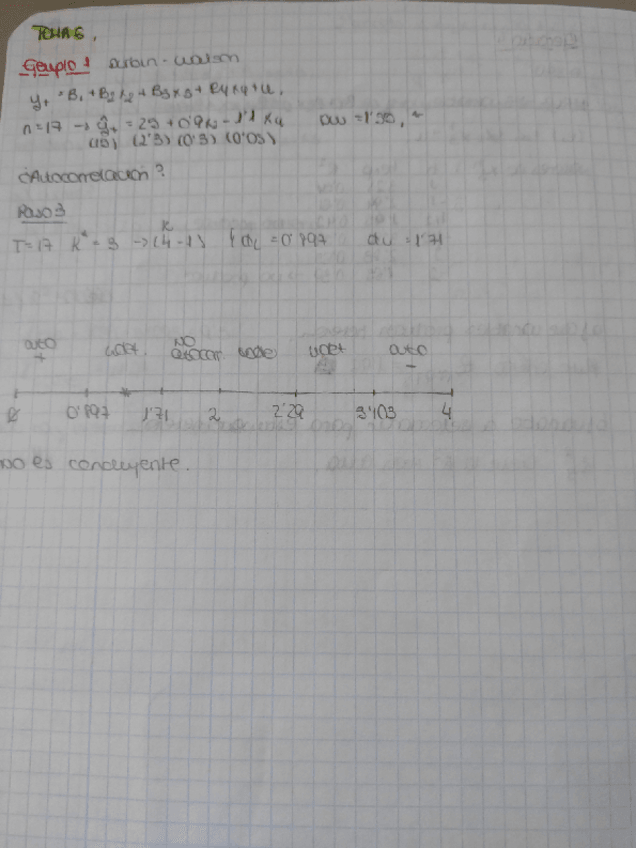 TEMA 6.
Ejemplo 1 Durbin-Watson
yt = B1 + B2 X2 + B3 X3 + B4 X4 + u.
n=17 → ŷt = 25 + 0'9 X2 - 1'1 X4 DW = 1'30,
(10) (2'3) (0'3) (0'05)
¿Autocorrelacion?
Paso 3
K
T=17 K* = 3 → (4-1) { dL = 0'897 du = 1'71
auto + NO autocorr auto -
0 0'897 1'71 2 2'29 3'103 4
no es concluyente.